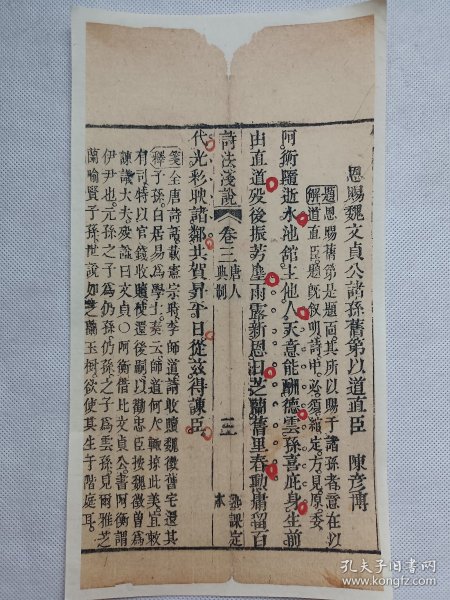 恩賜魏文貞公諸孫舊第以道直臣　陳彥博
題恩賜舊第是題面其所以賜于諸孫者意在以
解道直臣題既叙明詩中必須縮定方見原委
阿衡隨逝水池館主他人天意能酬德雲孫喜庇身生前
由直道歿後振芳塵雨露新恩日芝蘭舊里春勳庸留百
詩法淺說　卷三　唐人典制　塾課定本
代光彩映諸鄰共賀昇平日從茲得諫臣
箋全唐詩話載憲宗時李師道請收贖魏徵舊宅還其
釋子孫白居易為學士奏云師道何人輙掠此美宜敕
有司特以官錢收贖使還後嗣以勸忠臣按魏徵曾為
諫議大夫歿謚曰文貞〇阿衡借比文貞公書阿衡謂
伊尹也元孫之子為仍孫仍孫之子為雲孫見爾雅芝
蘭喻賢子孫世說如芝蘭玉樹欲使其生于階庭耳
孔夫子旧书网
book.kongfz.com